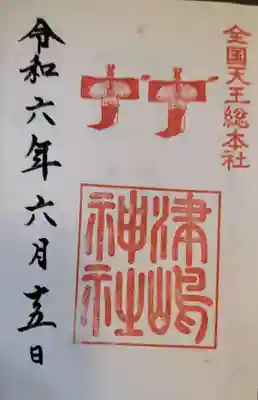 全国天王総本社
津嶋
神社
令和六年六月十五日